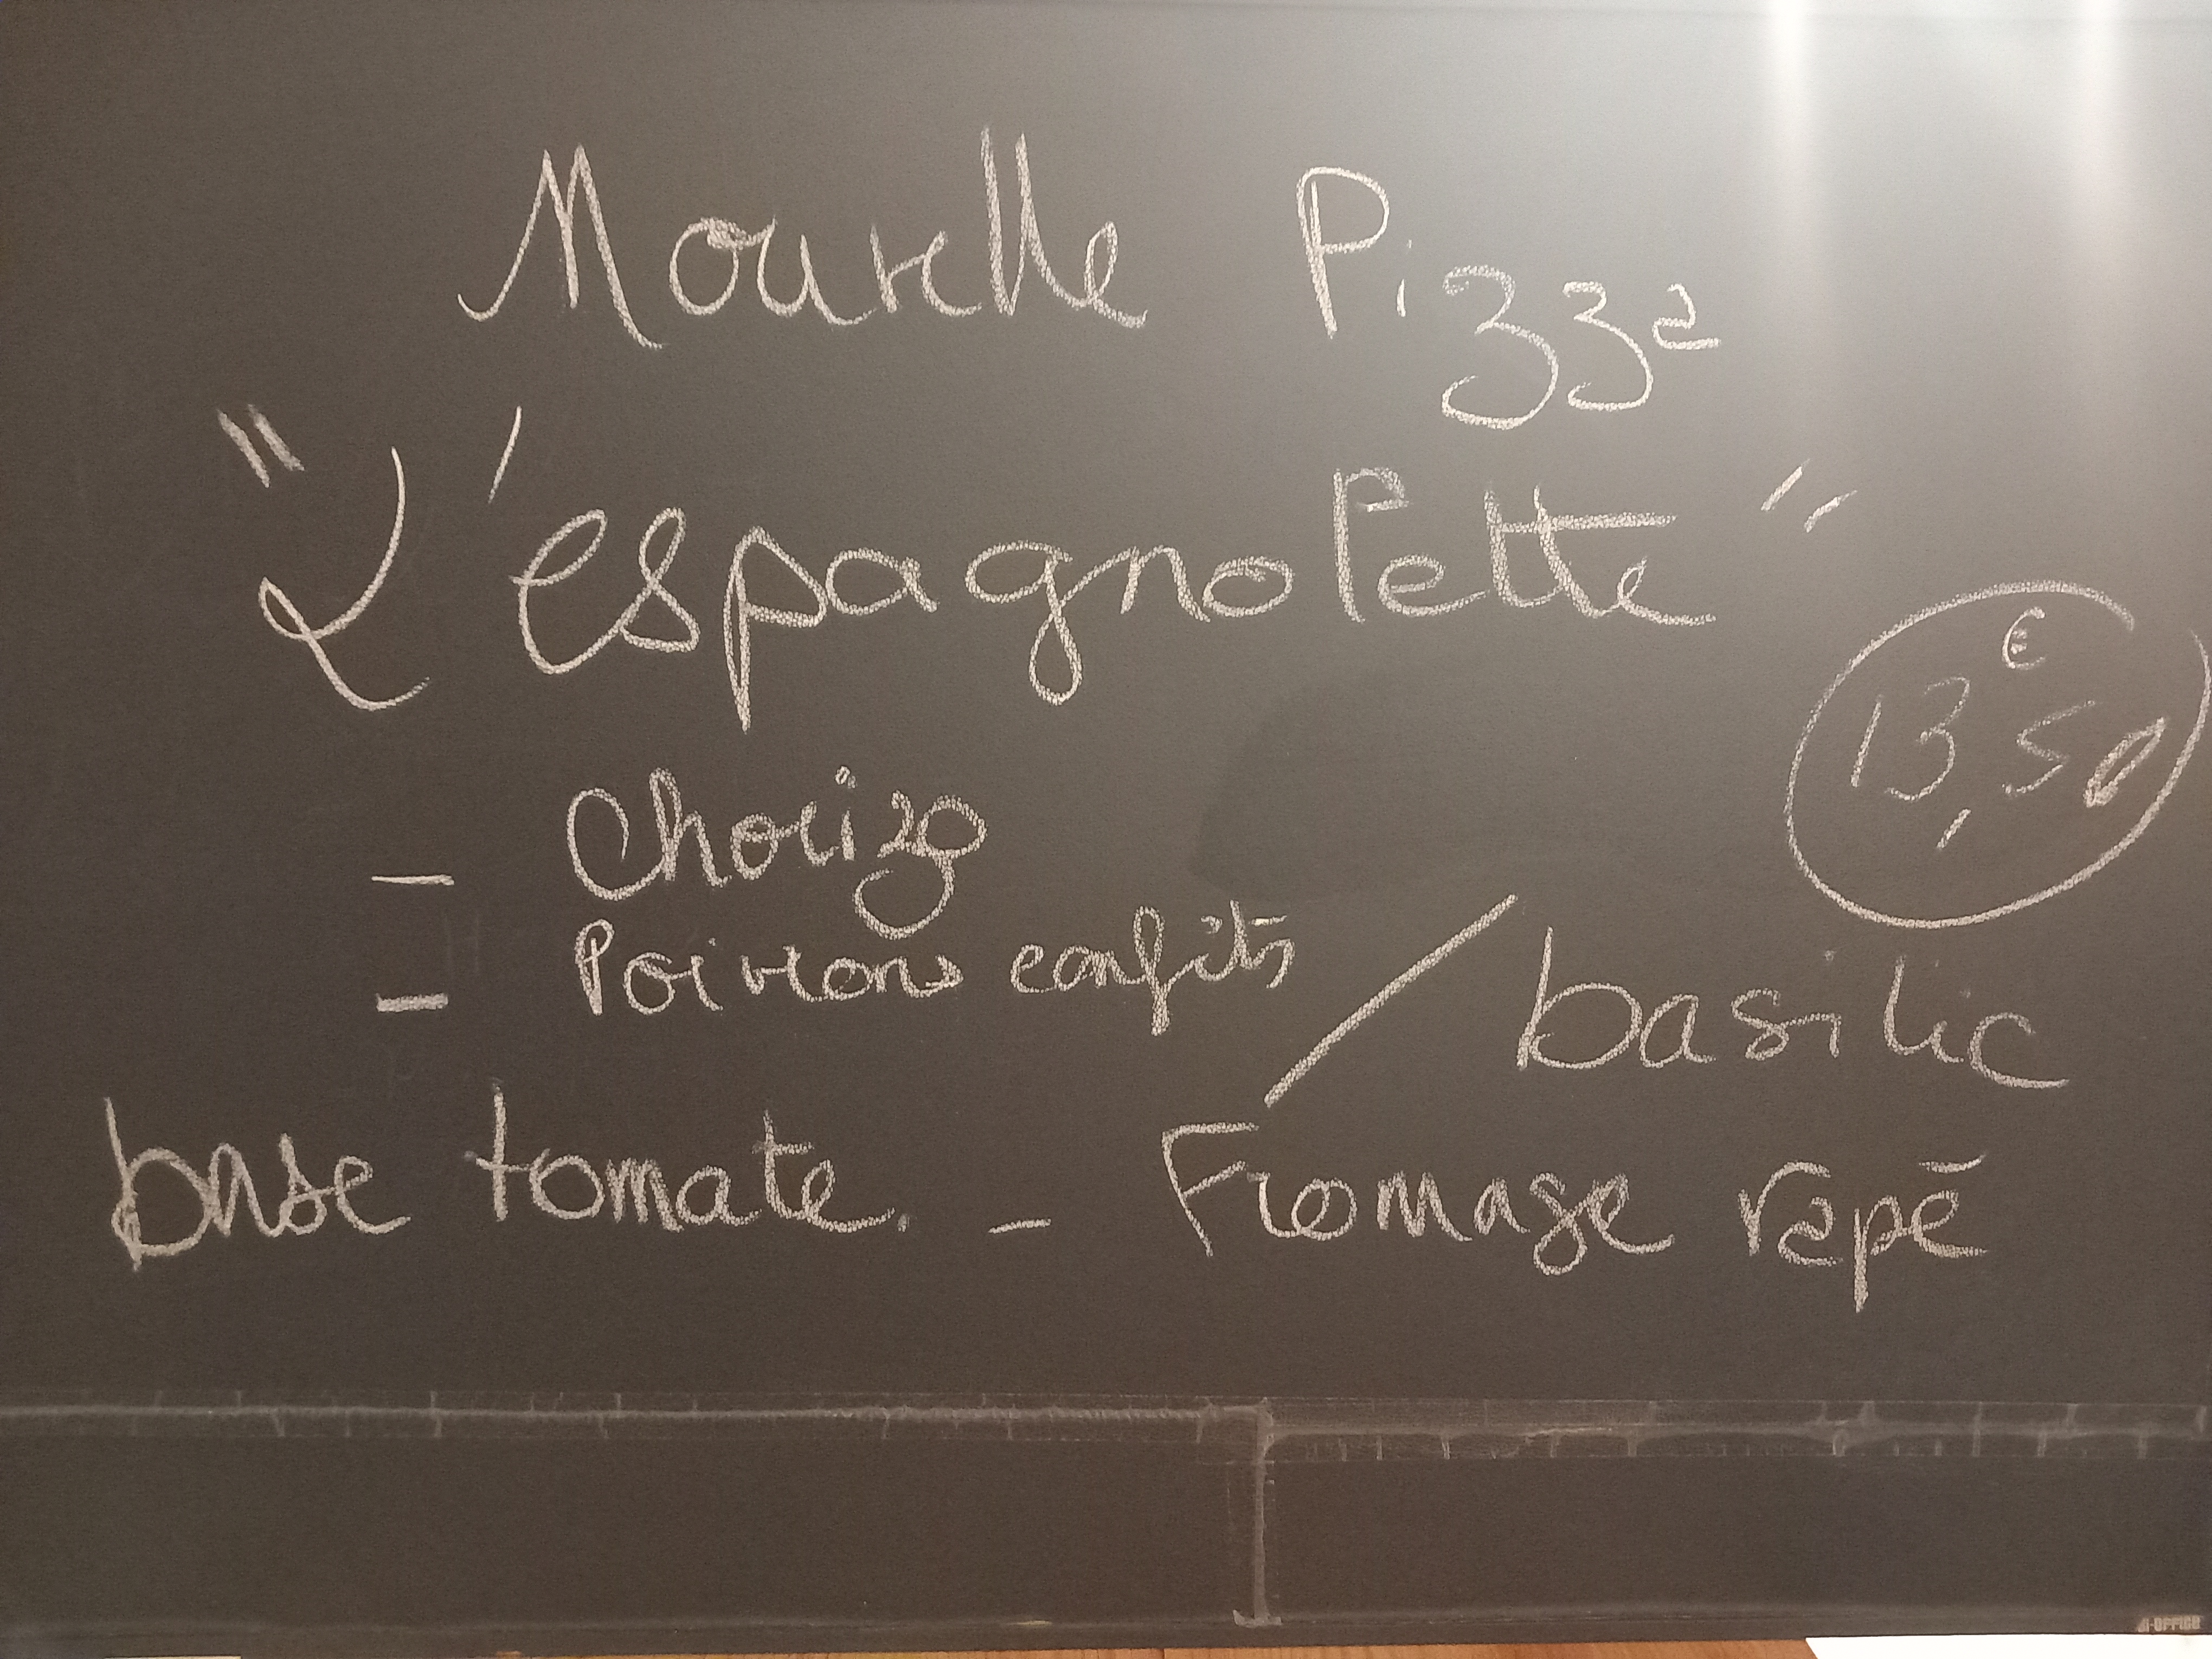 Nouvelle Pizza
"L'espagnolette"
13,50 €
- Chorizo
- Poivrons confits / basilic
base tomate. - Fromage rapé